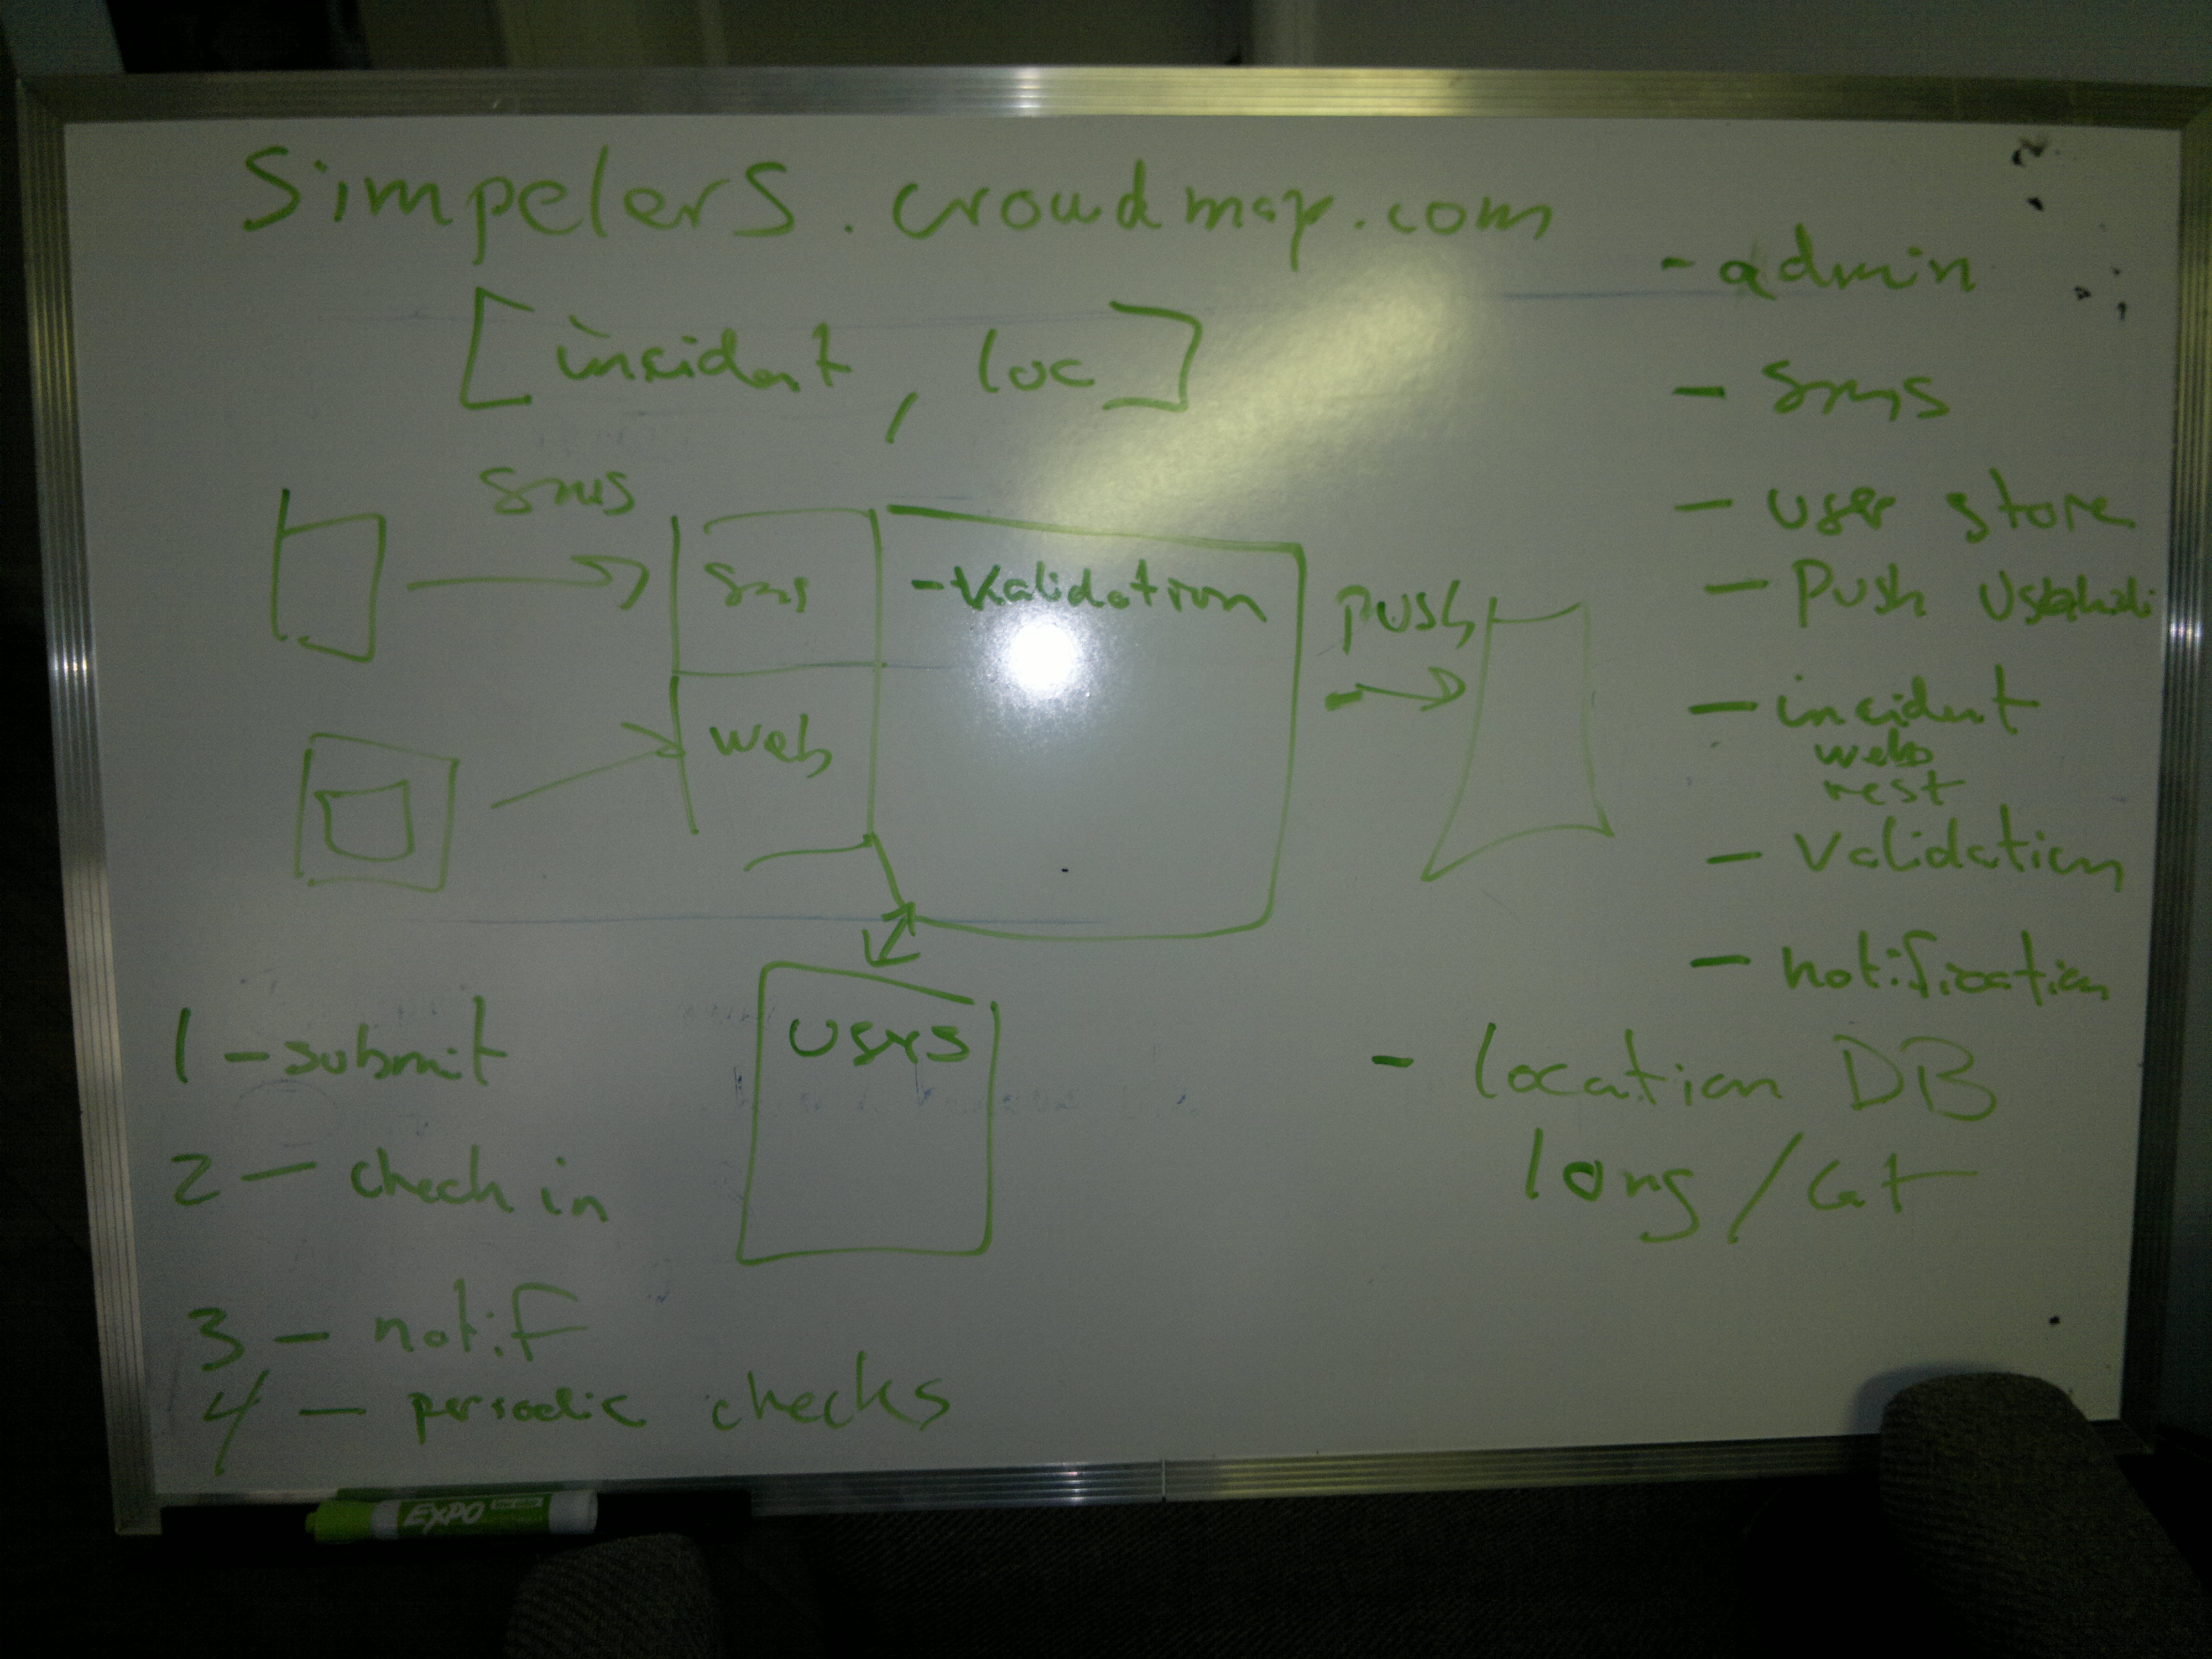 Simpelers.croudmap.com
[incident, loc]
sms
sms
- Validation
web
push
users
1 - submit
2 - check in
3 - notif
4 - periodic checks
- admin
- sms
- user store
- Push Ushahidi
- incident
web
rest
- Validation
- notification
- location DB
long/lat
EXPO